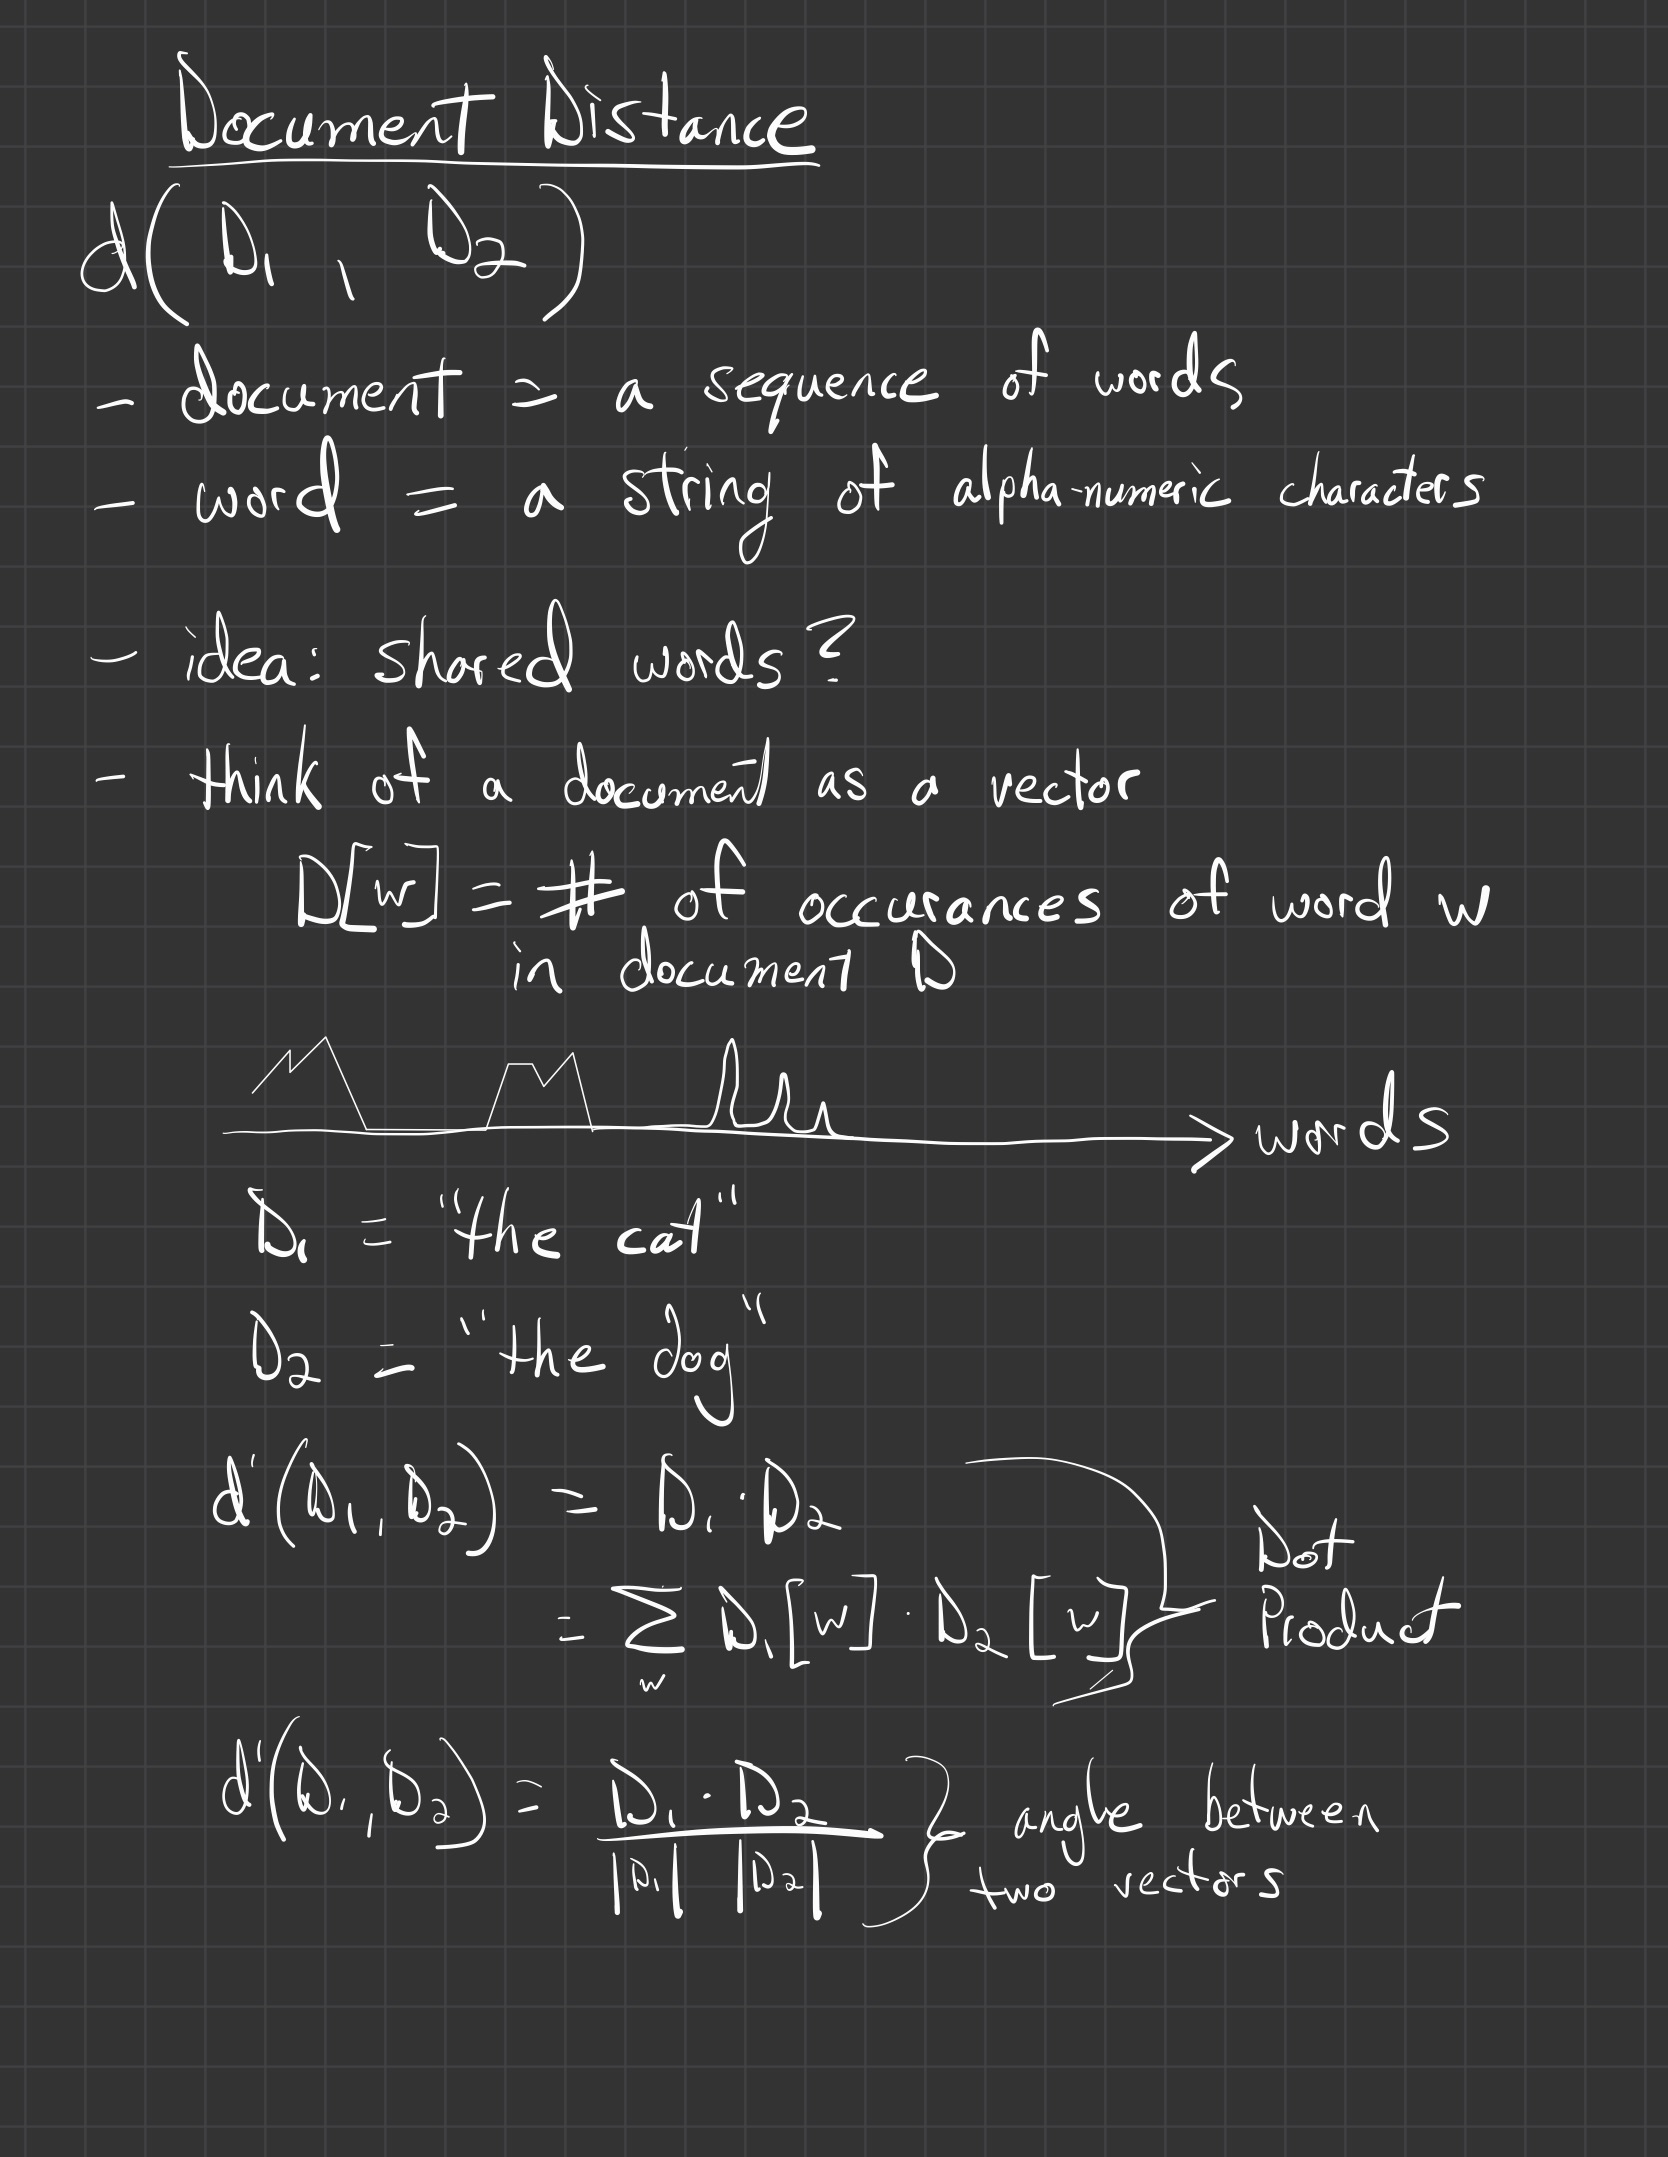 Document Distance
d(D₁, D₂)
- document = a sequence of words
- word = a string of alpha-numeric characters
- idea: shared words?
- think of a document as a vector
D[w] = # of occurances of word w
in document D
words
D₁ = "the cat"
D₂ = "the dog"
d'(D₁, D₂) = D₁ · D₂
= ∑ D₁[w] · D₂[w]
w
Dot
Product
d'(D₁, D₂) = D₁ · D₂
|D₁| |D₂|
angle between
two vectors